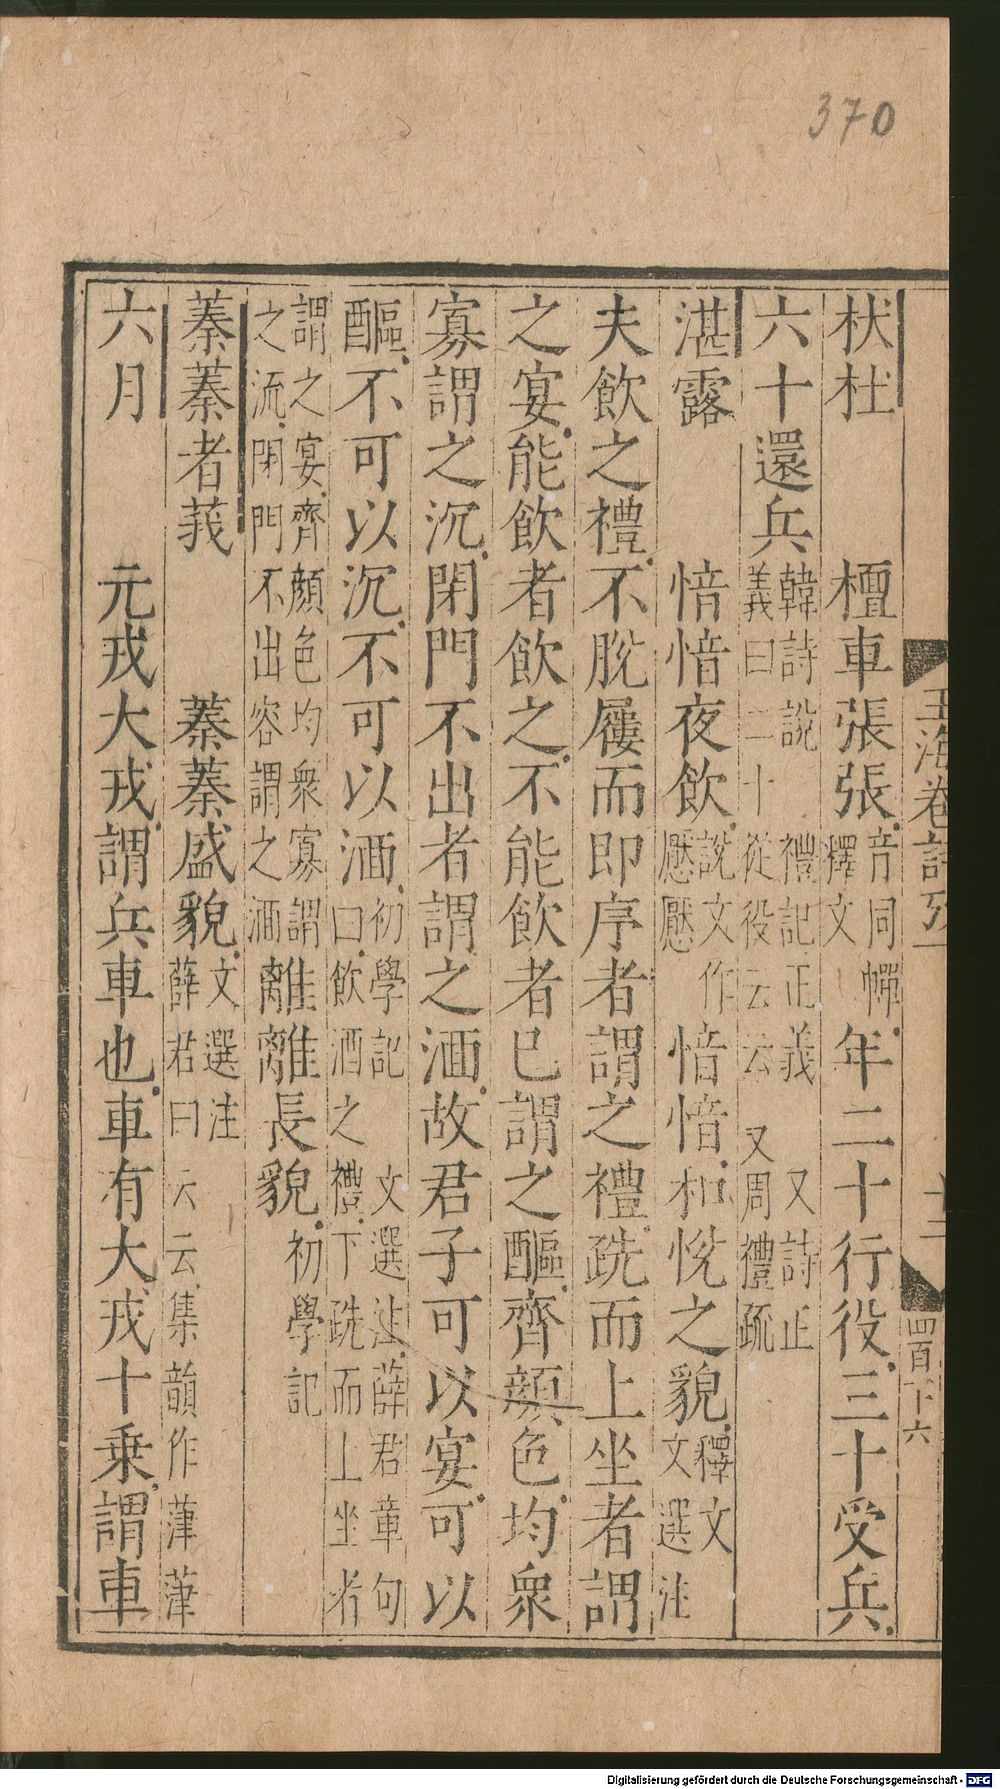 370
杕杜　檀車張張音同幝釋文年二十行役三十受兵
六十還兵韓詩說禮記正義又詩正義曰二十從役云云又周禮疏
湛露　愔愔夜飲說文作懕懕愔愔和悅之貌釋文文選注
夫飲之禮不脫屨而即序者謂之禮跣而上坐者謂
之宴能飲者飲之不能飲者已謂之醧齊顔色均衆
寡謂之沉閉門不出者謂之湎故君子可以宴可以
醧不可以沉不可以湎初學記文選注薛君章句曰飲酒之禮下跣而上坐者
謂之宴齊顔色均衆寡謂之流閉門不出容謂之湎離離長貌初學記
蓁蓁者莪　蓁蓁盛貌文選注薛君曰云云集韻作葏葏
六月　元戎大戎謂兵車也車有大戎十乘謂車
玉海卷詩攷一
十二
四百十六
Digitalisierung gefördert durch die Deutsche Forschungsgemeinschaft - DFG